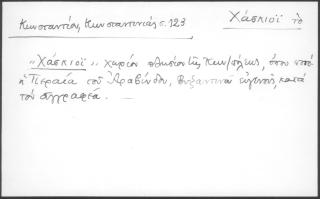 Κωνσταντίου, Κωνσταντινιάς σ. 123
Χάσκιοϊ τὸ
"Χάσκιοϊ" χωρίον πλησίον τῆς Κων/πόλεως, ὅπου
ἡ Πιερακία τοῦ Ἀραβίνδου, Βυζαντινοῦ εὐγενοῦς, κατὰ
τὸν συγγραφέα.